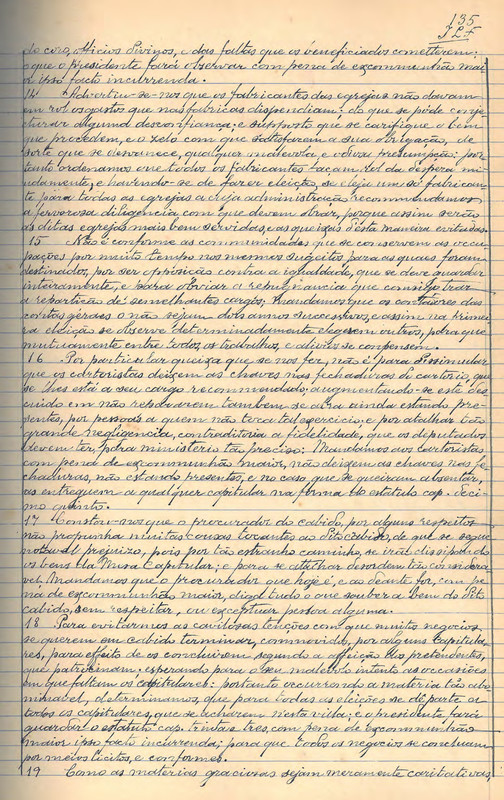 135
do coro, Officios Divinos, e das faltas que os beneficiados cometterem:
o que o presidente fará observar com pena de excommunhão mai
or ipso facto incurrenda.
14 Advertiu-se-nos que os fabricantes das egrejas não davam
em rol os gastos que nas fabricas dispendiam: do que se póde conje
cturar alguma desconfiança; e supposto que se verifique o bem
que procedem, e o zelo com que satisfazem a sua obrigação, de
sorte que se desvanece, qualquer presumpção: por
tanto ordenamos que todos os fabricantes façam rol da despeza mi
udamente, e havendo-se de fazer eleição, se eleja um só fabrican
te para todas as egrejas a cuja administração recommendamos
a fervorosa diligencia com que devem obrar, porque assim serão
as ditas egrejas mais bem servidas, e as queixas d'esta maneira evitadas.
15 Não é conforme as communidades que se conservem as occu
pações por muito tempo nos mesmos sugeitos para as quaes foram
destinados, por ser opposição contra a igualdade, que se deve guardar
inteiramente, e para obviar a repugnancia que comsigo traz
a repartição de semelhantes cargos; mandamos que os contadores das
contas geraes o não sejam dois annos successivos, e assim na primei
ra eleição se observe determinadamente elegerem outros, para que
mutuamente entre todos, os trabalhos, e alivios se compensem.
16 Por particular queixa que se nos fez, não é para dissimular
que os cartoristas deixem as chaves nas fechaduras do cartorio, que
se lhes está a seu cargo recommendado; augmentando-se este des
cuido em não repararem tambem se abra ainda estando pre
sentes, por pessoas a quem não toca tal exercicio; e por atalhar tão
grande negligencia, contradictoria a fidelidade, que os deputados
devem ter, para ministerio tão preciso: Mandamos aos cartoristas
com pena de excommunhão maior, não deixem as chaves nas fe
chaduras, não estando presentes, e no caso, que se queiram absentar,
as entreguem a qualquer capitular na forma do estatuto cap. deci
mo quinto.
17 Constou-nos que o procurador do cabido, por alguns respeitos
não propunha muitas cousas tocantes ao dito cabido, de que se segue
notavel prejuizo, pois por tão estranho caminho, se irão dissipando
os bens da Mesa Capitular; e para se atalhar desordem tão considera
vel, Mandamos que o procurador que hoje é, e ao deante for, com pe
na de excommunhão maior, diga tudo o que souber a bem do dito
cabido, sem respeitar, ou exceptuar pessoa alguma.
18 Para evitarmos as cavilosas tenções com que muitos negocios
se querem em cabido terminar, commovido, por alguns capitula
res, para effeito de os concluirem segundo a affeição dos pretendentes,
que patrocinam: esperando para o seu malevolo intento as occasiões
em que faltam os capitulares: portanto occurrendo a materia tão abo
minavel, determinamos, que para todas as eleições se dê parte a
todos os capitulares, que se acharem n'esta villa; e o presidente, fará
guardar o estatuto cap. trinta e tres, com pena de Excommunhão
maior ipso facto incurrenda; para que todos os negocios se concluam
por meios licitos, e conformes.
19 Como as materias graciosas sejam meramente caritativas